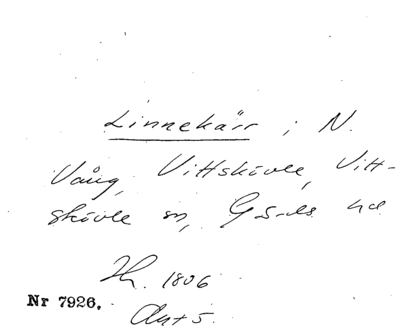 Linnekärr i N.
Vång, Vittskövle, Vitt-
skövle sn, Gärds hd
Th. 1806
Nr 7926.
Akt 5.